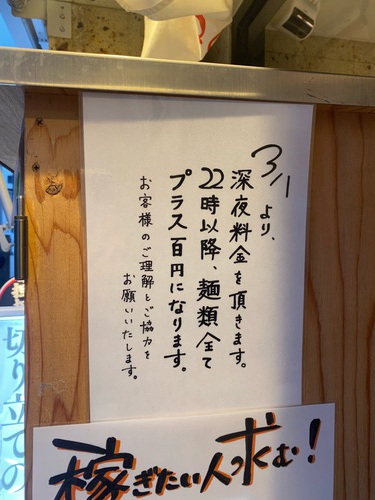 3/1より、
深夜料金を頂きます。
22時以降、麺類全て
プラス百円になります。
お客様のご理解とご協力を
お願いいたします。
稼ぎたい人求む!
切り立ての